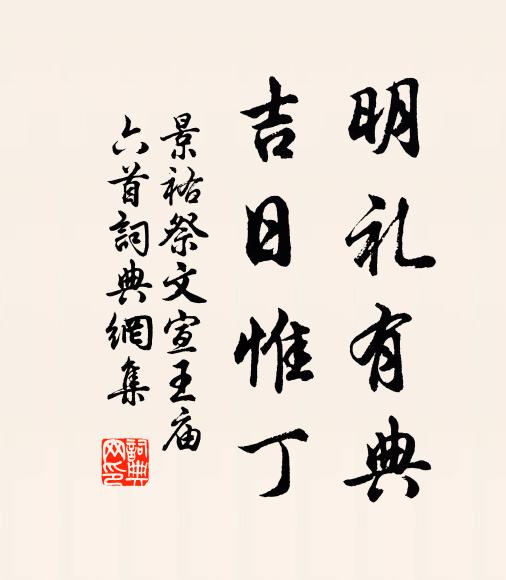 明礼有典
吉日惟丁
景祐祭文宣王庙
六首詞典網集
詞典网印